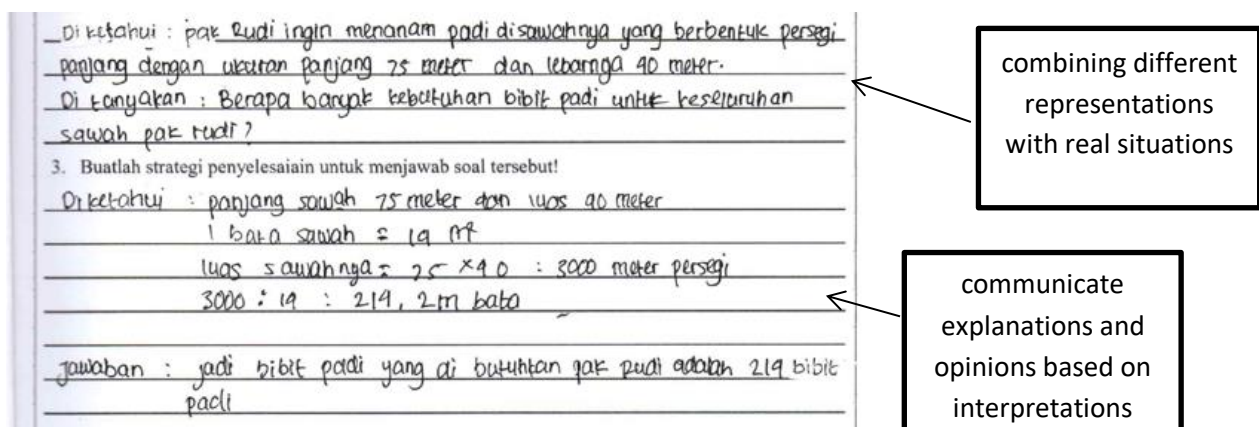 Diketahui : pak Rudi ingin menanam padi disawahnya yang berbentuk persegi
panjang dengan ukuran panjang 75 meter dan lebarnya 40 meter.
Di tanyakan : Berapa banyak kebutuhan bibit padi untuk keseluruhan
sawah pak rudi?
3. Buatlah strategi penyelesaiain untuk menjawab soal tersebut!
Diketahui : panjang sawah 75 meter dan luas 40 meter
1 bata sawah = 14 m²
luas sawahnya = 75 ×40 : 3000 meter persegi
3000 : 14 : 214, 2 m bata
Jawaban : jadi bibit padi yang di butuhkan pak Rudi adalah 214 bibit
padi
combining different
representations
with real situations
communicate
explanations and
opinions based on
interpretations